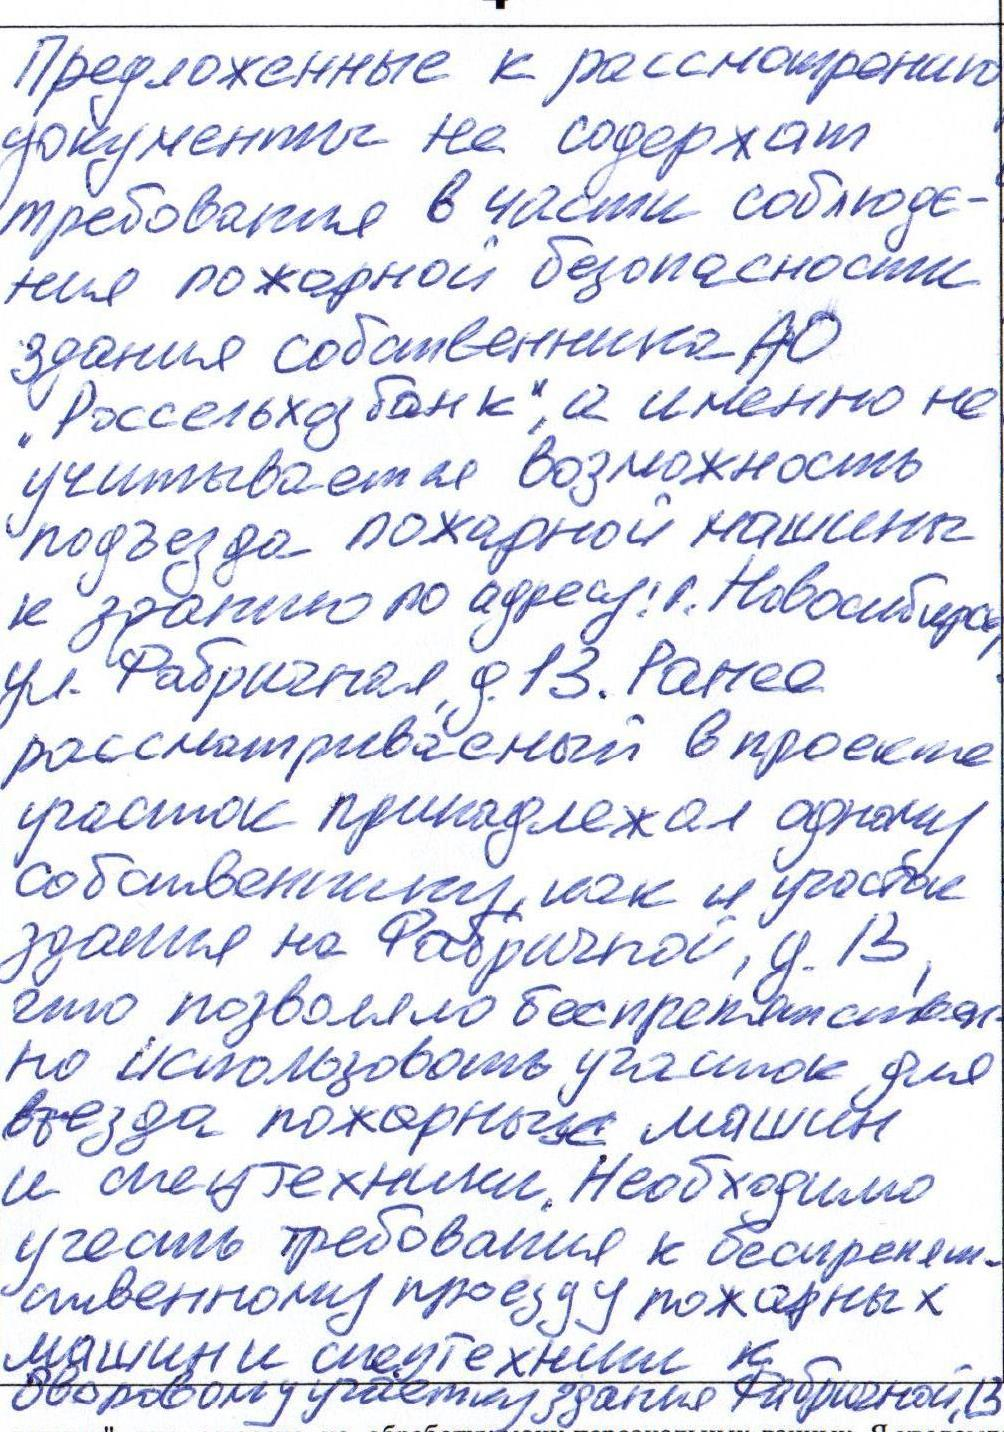 Предложенные к рассмотрению
документы не содержат
требования в части соблюде-
ния пожарной безопасности
здания собственника АО
"Россельхозбанк", а именно не
учитывается возможность
подъезда пожарной машины
к зданию по адресу: г. Новосибирск,
ул. Фабричная, д. 13. Ранее
рассматриваемый в проекте
участок принадлежал одному
собственнику, как и участок
здания на Фабричной, д. 13,
что позволяло беспрепятствен-
но использовать участок для
въезда пожарных машин
и спецтехники. Необходимо
учесть требования к беспрепят-
ственному проезду пожарных
машин и спецтехники к
дворовому участку здания Фабричной, 13